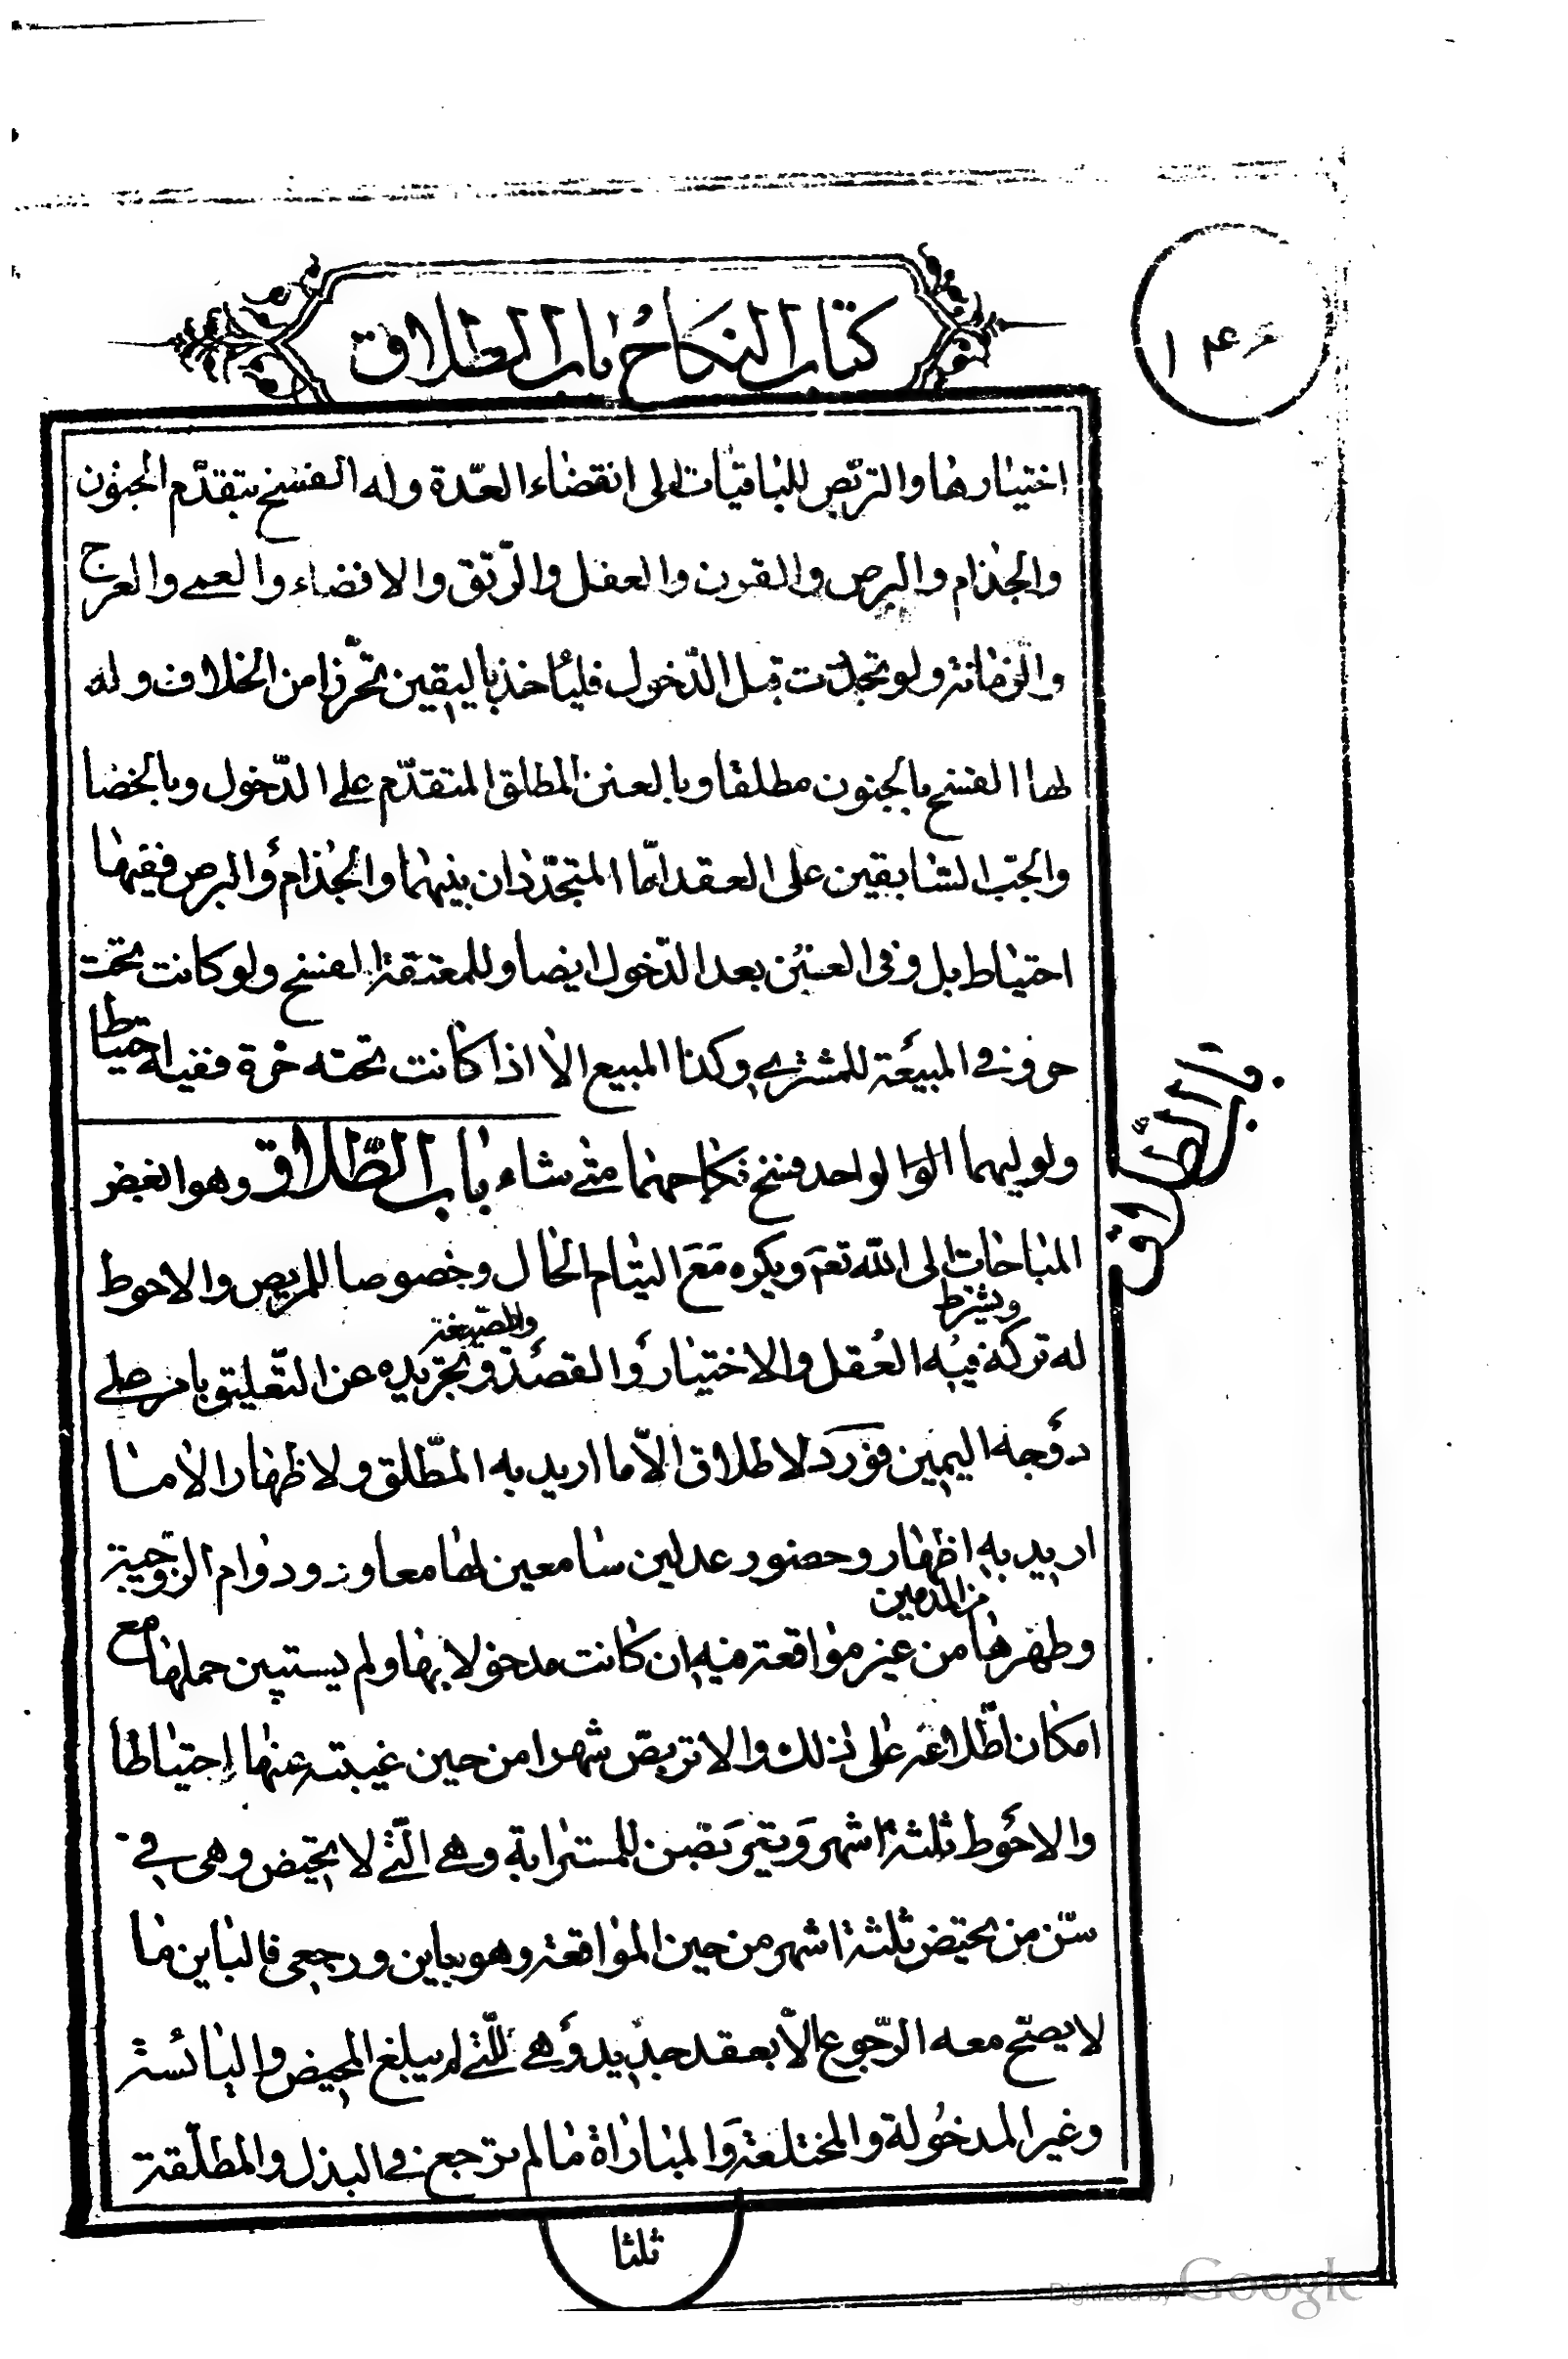 ۱۴۶
كتاب النكاح باب الطلاق
اختيارها والتربّص للباقيات الى انقضاء العدّة وله الفسخ بتقدّم الجنون
والجذام والبرص والقرن والعفل والرّتق والافضاء والعمى والعرج
والزّمانة ولو تجدّدت قبل الدّخول فلياخذ باليقين تحرّزا من الخلاف وله
لها الفسخ بالجنون مطلقا وبالعنن المطلق المتقدّم على الدّخول وبالخصا
والجبّ السّابقين على العقد امّا المتجدّدان بينهما والجُذام والبرص ففيها
احتياط بل وفى العنين بعد الدّخول ايضا وللمعتقة الفسخ ولو كانت تحت
حر وفي المبيعة للمشتري وكذا المبيع الا اذا كانت تحته حرة ففيه احتياط
ولوليهما الواحد فسخ نكاحهما متى شاء باب الطّلاق وهو ابغض
باب الطلاق
المباحات الى الله تعم ويكره مَعَ التيام الحال وخصوصا للمريض والاحوط
ويشترط
له تركه فيه العقل والاختيار والقصد وتجريده عن التّعليق بامر على
والصّيغة
وجه اليمين فورد لا طلاق الاّ ما اريد به الطّلاق ولا ظهار الا ما
اريد به اظهار وحضور عدلين سامعين لها معا ودوام الزوجيّة
من الدمين
وطهرها من غير مواقعة فيه ان كانت مدخولا بها ولم يستبين حملها مع
امكان اطّلاعه على ذلك والا تربّص شهرا من حين غيبته عنها احتياطا
والاحوط ثلثة اشهر ويتربّصن للمسترابة وهي الّتي لا تحيض وهى في
سّن من تحيض ثلثة اشهر من حين المواقعة وهو باين ورجعى فالباين ما
لا يصحّ معه الرّجوع الاّ بعقد جديد وهي للّتي لم يبلغ المحيض واليائسة
وغير المدخولة والمختلعة والمباراة مالم ترجع في البذل والمطلّقة
ثلثا
Digitized by Google